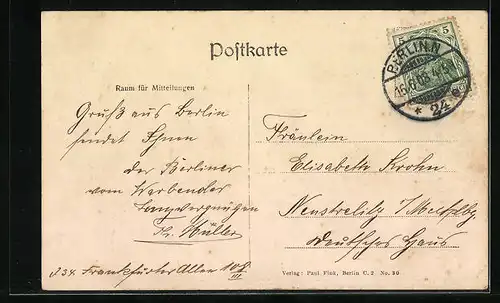 Postkarte
Raum für Mitteilungen
Gruß aus Berlin
sendet Ihnen
der Berliner
vom Werbender
Müller
Frankfurter Allee 108
III
Fräulein
Elisabeth Krohn
Neustrelitz i/Mecklbg
Deutsches Haus
5 5
BERLIN.N.
* 24
Verlag: Paul Fink, Berlin C.2 No. 30